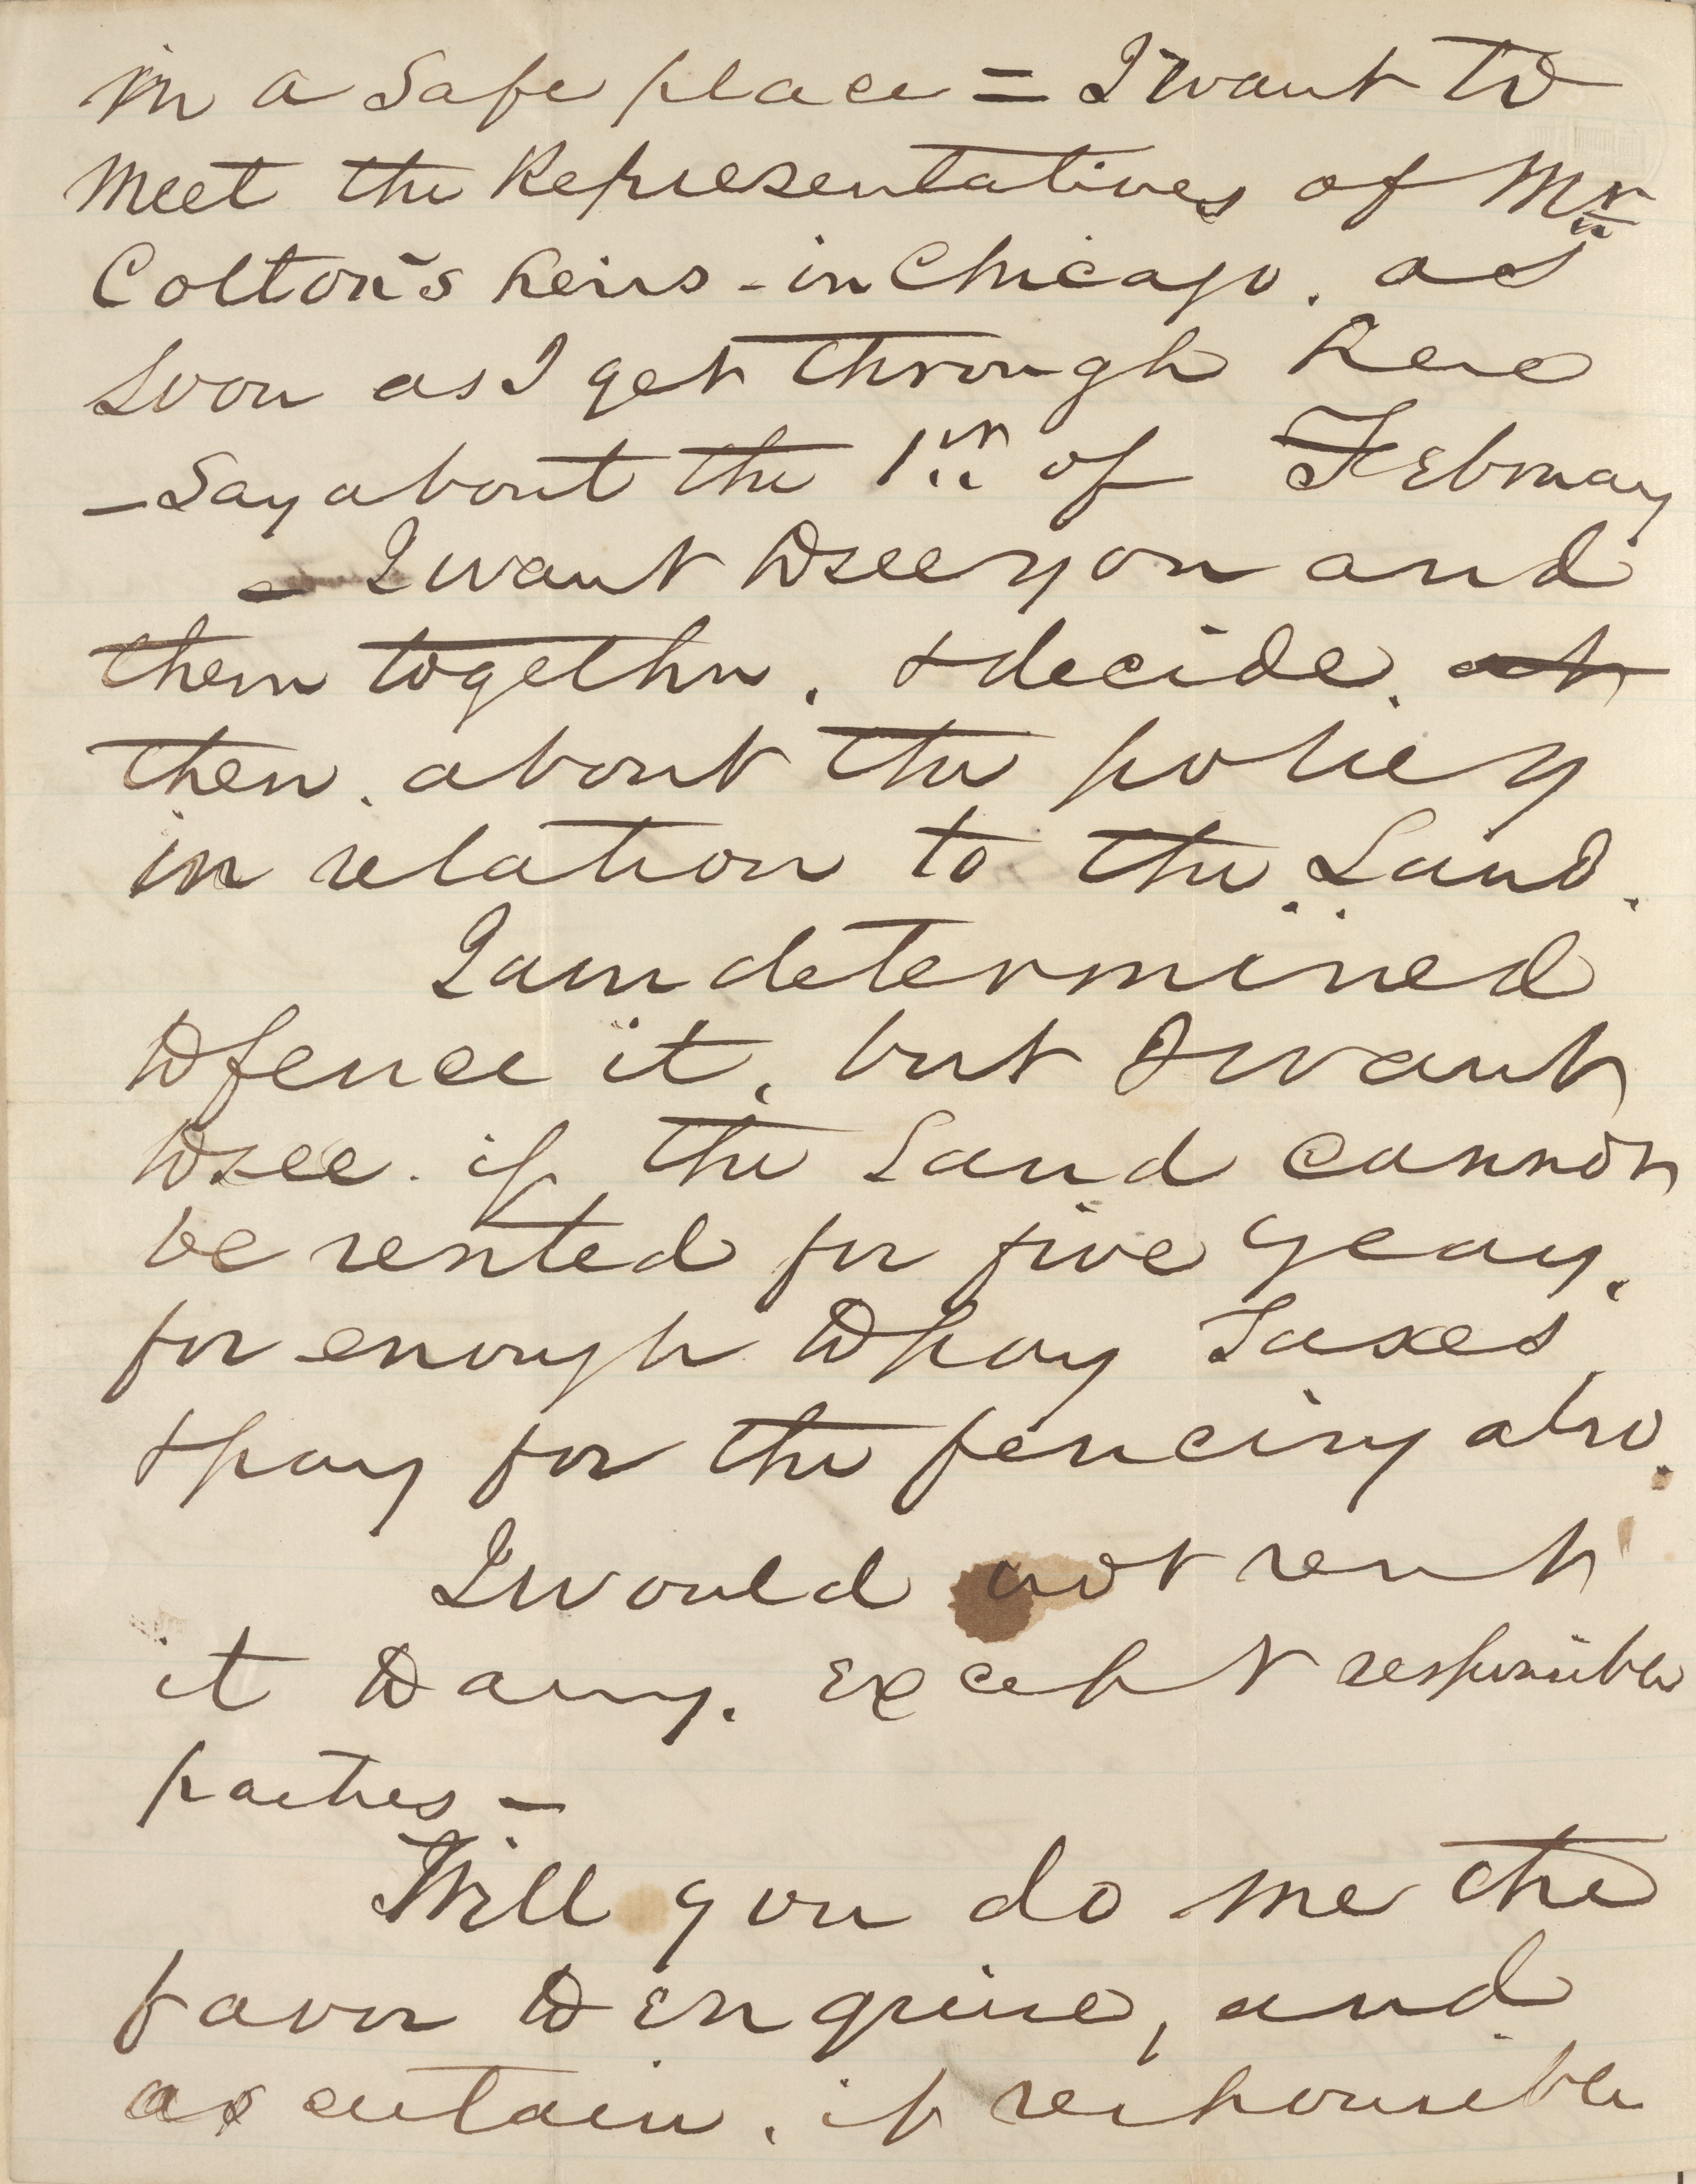 in a Safe place = I want to
meet the Representatives of Mr
Colton's heirs - in Chicago. as
soon as I get through here
- Say about the 1st of February
- I want to see you and
them together. & decide. at
then. about the policy
in relation to the Land.
I am determined
to fence it, but I want
to see. if the Land cannot
be rented for five years.
for enough to pay Taxes,
& pay for the fencing also.
I would not rent
it to any. except responsible
parties -
Will you do me the
favor to enquire, and
ascertain, if responsible